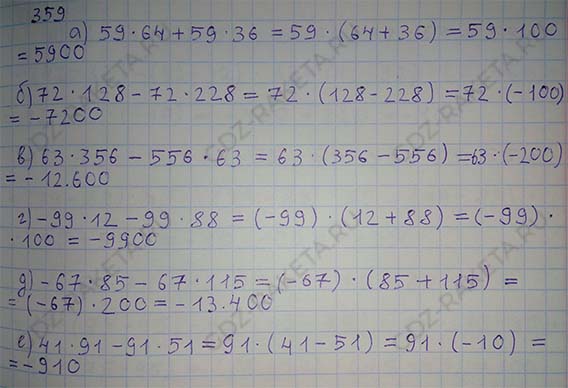 359
а) 59·64 + 59·36 = 59·(64 + 36) = 59·100
= 5900
б) 72·128 - 72·228 = 72·(128 - 228) = 72·(-100)
= -7200
в) 63·356 - 556·63 = 63·(356 - 556) = 63·(-200)
= -12.600
г) -99·12 - 99·88 = (-99)·(12 + 88) = (-99)·
·100 = -9900
д) -67·85 - 67·115 = (-67)·(85 + 115) =
= (-67)·200 = -13.400
е) 41·91 - 91·51 = 91·(41 - 51) = 91·(-10) =
= -910
GDZ-RAKETA.RU